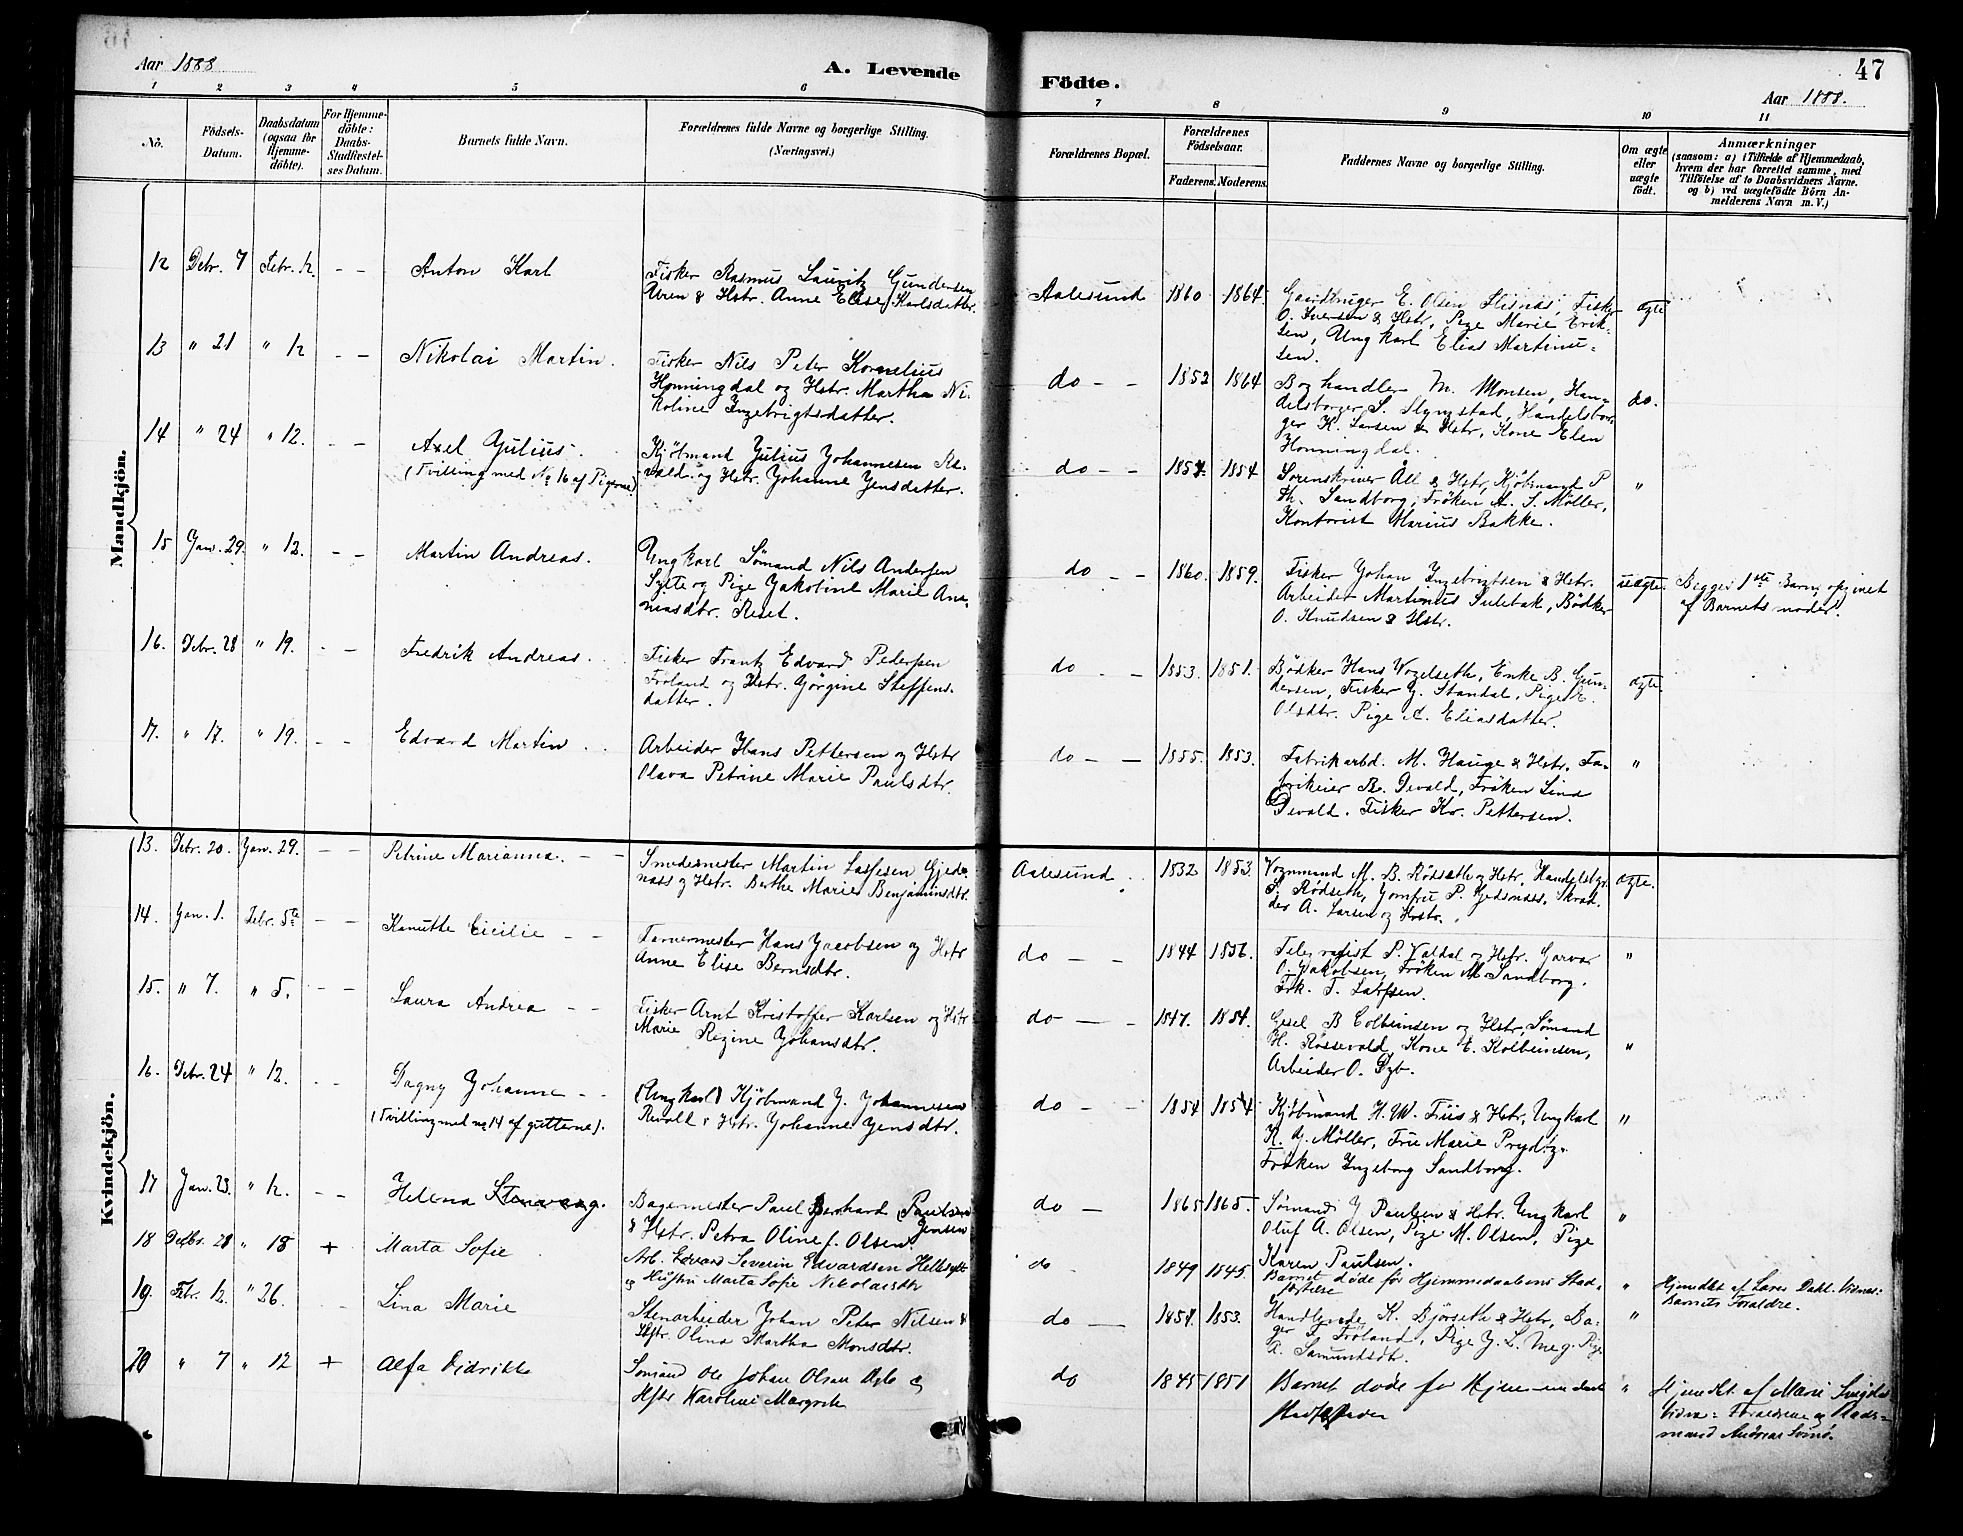 Aar 1888
A. Levende
Födte.
47
Aar 1888.
1 2 3 4 5 6 7 8 9 10 11
No.
Födsels-
Datum.
Daabsdatum
(ogsaa for
Hjemme-
döbte).
For Hjemme-
döbte:
Daabs-
Stadfæstel-
ses Datum.
Barnets fulde Navn.
Forældrenes fulde Navne og borgerlige Stilling.
(Næringsvei.)
Forældrenes Bopæl.
Forældrenes
Födselsaar.
Faderens. Moderens.
Faddernes Navne og borgerlige Stilling.
Om ægte
eller
uægte
födt.
Anmærkninger
(saasom: a) i Tilfælde af Hjemmedaab,
hvem der har forrettet samme, med
Tilföielse af to Daabsvidners Navne.
og b) ved uægtefödte Börn An-
melderens Navn m.V.)
Mandkjön.
12 Debr. 7 Febr. 12. – – Anton Karl
Fisker Rasmus Lauritz Gundersen
Uren & Hstr. Anne Elise Karlsdatter.
Aalesund 1860 1864.
E. Olsen, Fisker
O. Iversen & Hstr, Pige Marie Erik-
sen, Ungkarl Elias Martinu-
sen.
ægte
13 " 21 " 12 – – Nikolai Martin.
Fisker Nils Peter Kornelius
Honningdal og Hstr. Martha Ni-
koline Ingebrigtsdatter.
do – – 1852 1864.
Boghandler M. Monsen, Han-
delsborger S. Slyngstad, Handelsbor-
ger K. Larsen & Hstr, Kone Elen
Honningdal.
do.
14 " 24 " 12. – – Axel Julius.
(Tvilling med No 16 af Pigerne)
Kjöbmand Julius Johannesen Re-
vald. og Hstr. Johanne Jensdatter.
do – – 1854. 1854
Sorenskriver All & Hstr, Kjöbmand P
Th. Sandborg, Fröken A. S. Möller,
Kontorist Marius Bakke.
"
15 Jan. 29. " 12. – – Martin Andreas.
Ungkarl Sømand Nils Andersen
Sylte og Pige Jakobine Marie
do – – 1860. 1859.
Fisker Johan Ingebrigtsen & Hstr.
Arbeider Martinus Sulebak, Bödker
O. Knudsen & Hstr.
uægte.
Begges 1ste Barn, opgivet
af Barnets moder.
16. Debr. 28 " 19. – – Fredrik Andreas.
Fisker Frantz Edvard Pedersen
Fröland og Hstr. Jörgine Steffens-
datter.
do – – 1853. 1851.
Bödker Hans Vogelseth, Enke B. Gun-
dersen, Fisker J. Standal, Pige
Olsdtr. Pige A. Eliasdatter.
ægte.
17. " 17. " 19. – – Edvard Martin.
Arbeider Hans Pettersen og Hstr
Olava Petrine Marie Paulsdtr.
do – – 1855. 1853.
Fabrikarbd. M. Hauge & Hstr. Fa-
brikeier B. Devald, Fröken Lina
Devald. Fisker Kr. Pettersen.
"
Kvindekjön.
13. Debr. 20. Jan. 29. – – Petrine Marianna. – –
Smedemester Martin Lassesen Gjeds-
næss og Hstr. Berthe Marie Benjaminsdtr.
Aalesund. 1832 1853.
Vognmand M. B. Rödseth og Hstr, Handelsbgr.
P. Rödseth, Jomfru P. Gjedsnæss. Skræd-
der A. Larsen og Hstr.
ægte.
14. Jan. 1. Febr. 5te – – Kanutte Cicilie – –
Farvermester Hans Jacobsen og Hstr
Anne Elise Berndtr.
do – – 1844 1856.
Telegrafist P. Valdal og Hstr. Garver
O. Jakobsen, Fröken M. Sandborg.
Frk. T. Larssen.
"
15. " 7. " 5. – – Laura Andrea – –
Fisker Arnt Kristoffer Karlsen og Hstr
Marie Regine Johansdtr.
do – – 1847. 1854.
B Colbeinsen og Hstr, Sømand
H. Rössevold, Kone E. Kolbeinsen,
Arbeider O. Dyb.
"
16. Debr. 24 " 12. – – Dagny Johanne – –
(Tvilling med no 14 af gutterne).
(Ungkarl) Kjöbmand J. Johannesen
Revald & Hstr. Johanne Jensdtr.
do – – 1854 1854
Kjöbmand H. W. Friis & Hstr, Ungkarl
K. J. Möller, Fru Marie Prydtz.
Fröken Ingeborg Sandborg.
"
17 Jan. 23. " 12. – – Helena Stenvaag.
Bagermester Paul Bernhard (Paulsen
Jensen
& Hstr. Petra Oline f. Olsen.
do – 1865 1865.
Sømand J Paulsen & Hstr. Ungkarl
Oluf A. Olsen, Pige M. Olsen, Pige
Karen Paulsen.
"
18 Debr. 28 " 18 + Marta Sofie
Arb. Edvard Severin Edvardsen Hellesylt
og Hustru Marta Sofie Nikolaisdtr
do 1849 1845.
Barnet døde før Hjemmedaabens Stad-
fæstelse
"
Hjemdbt af Lars Dahl. Vidner:
Barnets Forældre.
19. Febr. 12. " 26. – Lina Marie
Stenarbeider Johan Peter Nilsen &
Hstr. Olina Martha Monsdtr.
do – 1854. 1853.
Handlende K. Björseth & Hstr, Ba-
ger Fröland, Pige J. L. Meg. Pige
A. Samundsdtr.
"
20 " 7 " 12 + Alfa Didrikke
Sømand Ole Johan Olsen Dyb og
Hstr Karoline Margrete
do 1845 1851
Barnet døde før Hjemmedaab
"
Hjemdbt. af Marie
Vidner: Forældrene og Stads-
mand Andreas